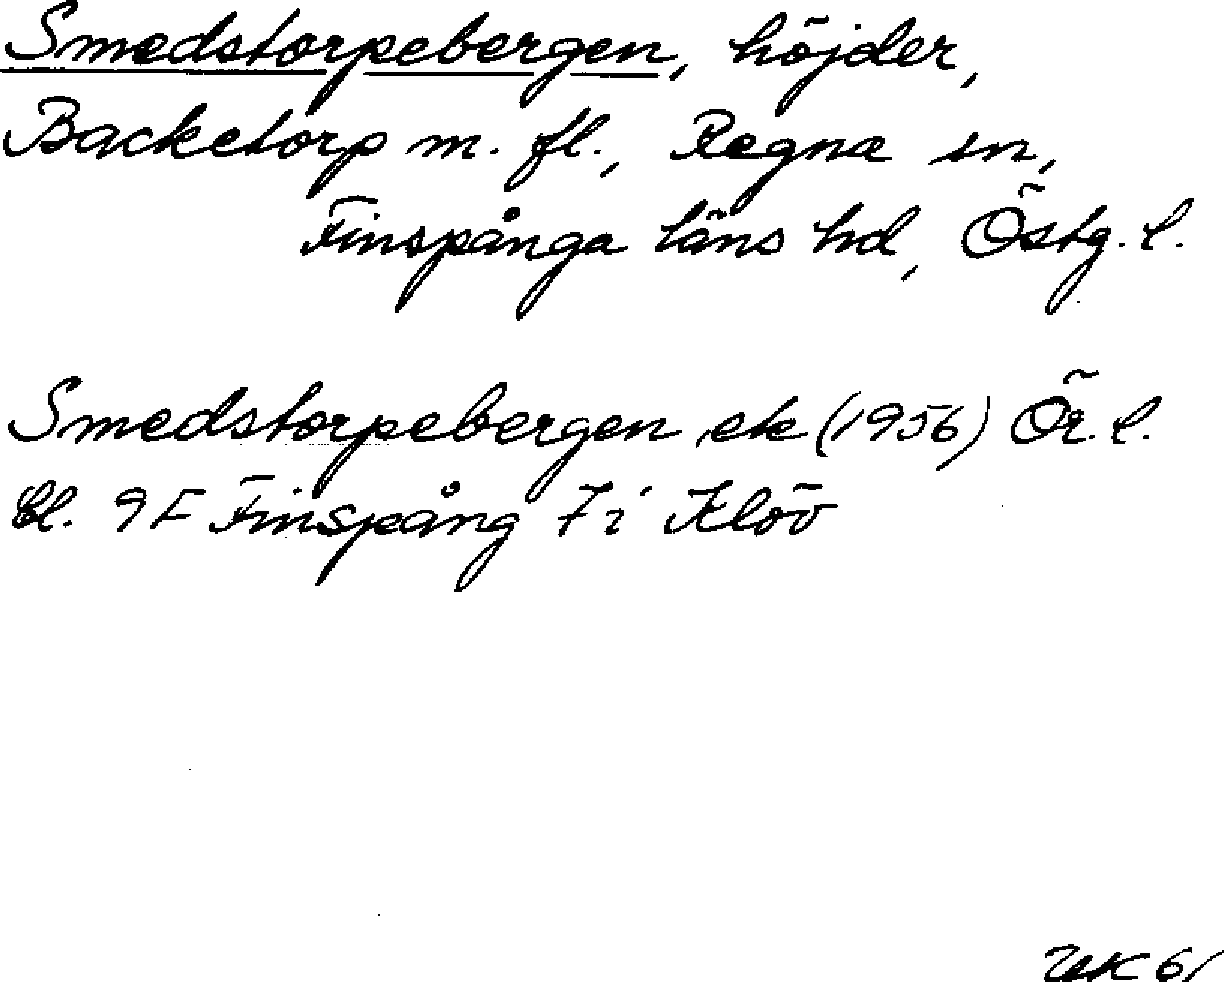 Smedstorpebergen, höjder,
Backetorp m. fl., Regna sn,
Finspånga läns hd, Östg. l.
Smedstorpebergen ek (1956) Ör. l.
Bl. 9F Finspång 7i Klöv
61